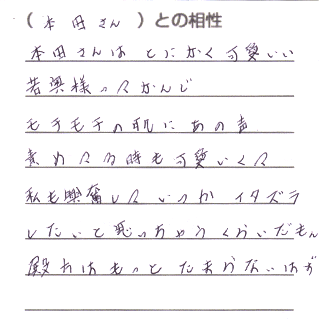 （本田さん）との相性
本田さんは とにかく可愛いい
若奥様ってかんじ
モチモチの肌にあの声
責めてる時も可愛いくて
私も興奮して いつか イタズラ
したいと思っちゃうくらいだもん
殿方はもっと たまらないはず